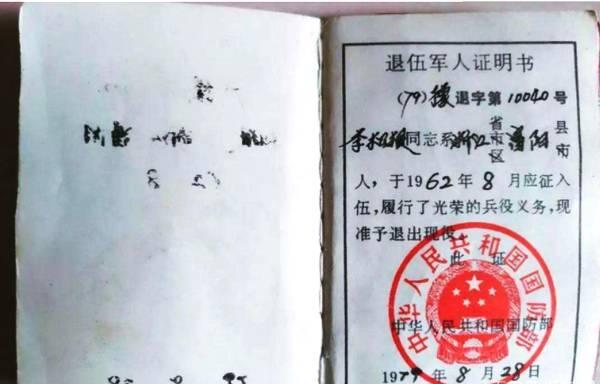 退伍军人证明书
(79)援退字第10040号
李 同志系浙江省市区 阳县市
人，于1962年8月应征入
伍，履行了光荣的兵役义务，现
准予退出现役。
此证
中华人民共和国国防部
中华人民共和国国防部
1979年8月28日